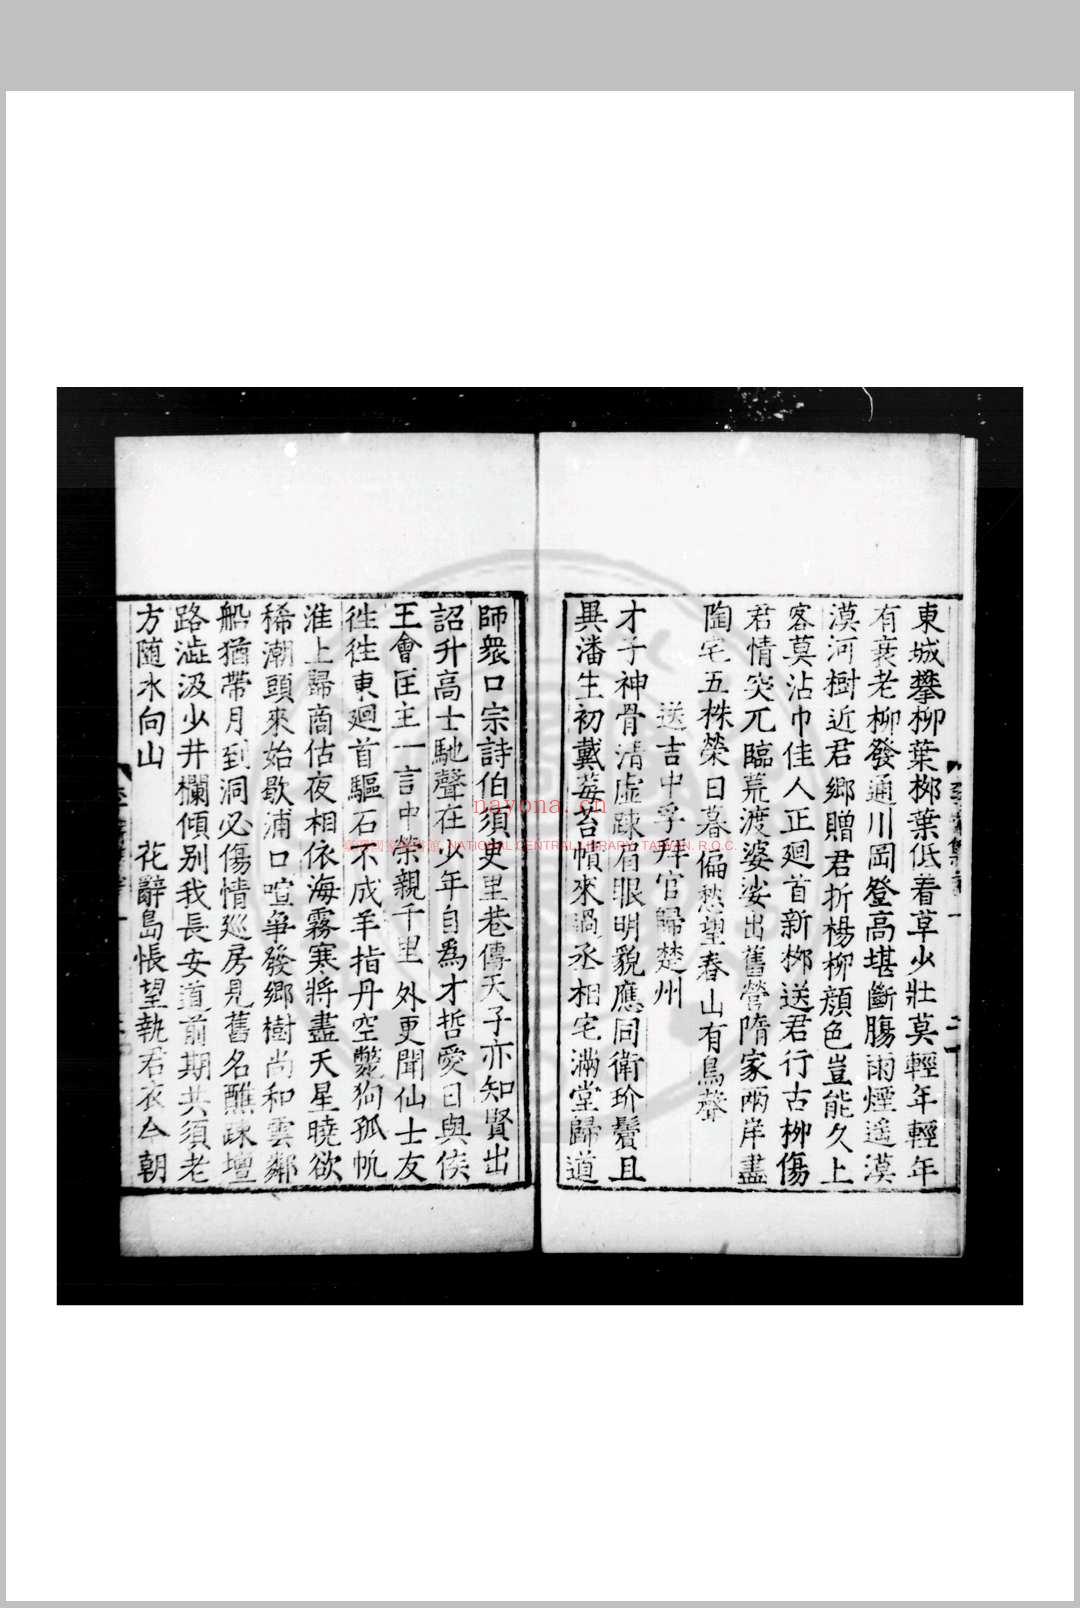 東城攀柳葉柳葉低看草少壯莫輕年輕年
有衰老柳發通川岡登高堪斷腸雨煙遙漠
漠河樹近君鄉贈君折楊柳顔色豈能久上
客莫沾巾佳人正廻首新柳送君行古柳傷
君情突兀臨荒渡婆娑出舊營隋家兩岸盡
陶宅五株榮日暮偏愁望春山有鳥聲
送吉中孚拜官歸楚州
才子神骨清虛踈眉眼明貌應同衛玠鬢且
異潘生初戴莓苔幘來過丞相宅滿堂歸道
師衆口宗詩伯須史里巷傳天子亦知賢出
詔升高士馳聲在少年自爲才哲愛日與侯
王會匡主一言中榮親千里外更聞仙士友
徃徃東廻首驅石不成羊指丹空斃狗孤帆
淮上歸商估夜相依海霧寒將盡天星曉欲
稀潮頭來始歇浦口喧爭發鄉樹尚和雲鄰
船猶帶月到洞必傷情巡房見舊名醮踈壇
路澁汲少井欄傾别我長安道前期共須老
方隨水向山 花辭島悵望執君衣今朝
nayona.cn
NATIONAL CENTRAL LIBRARY, TAIWAN, R.O.C.